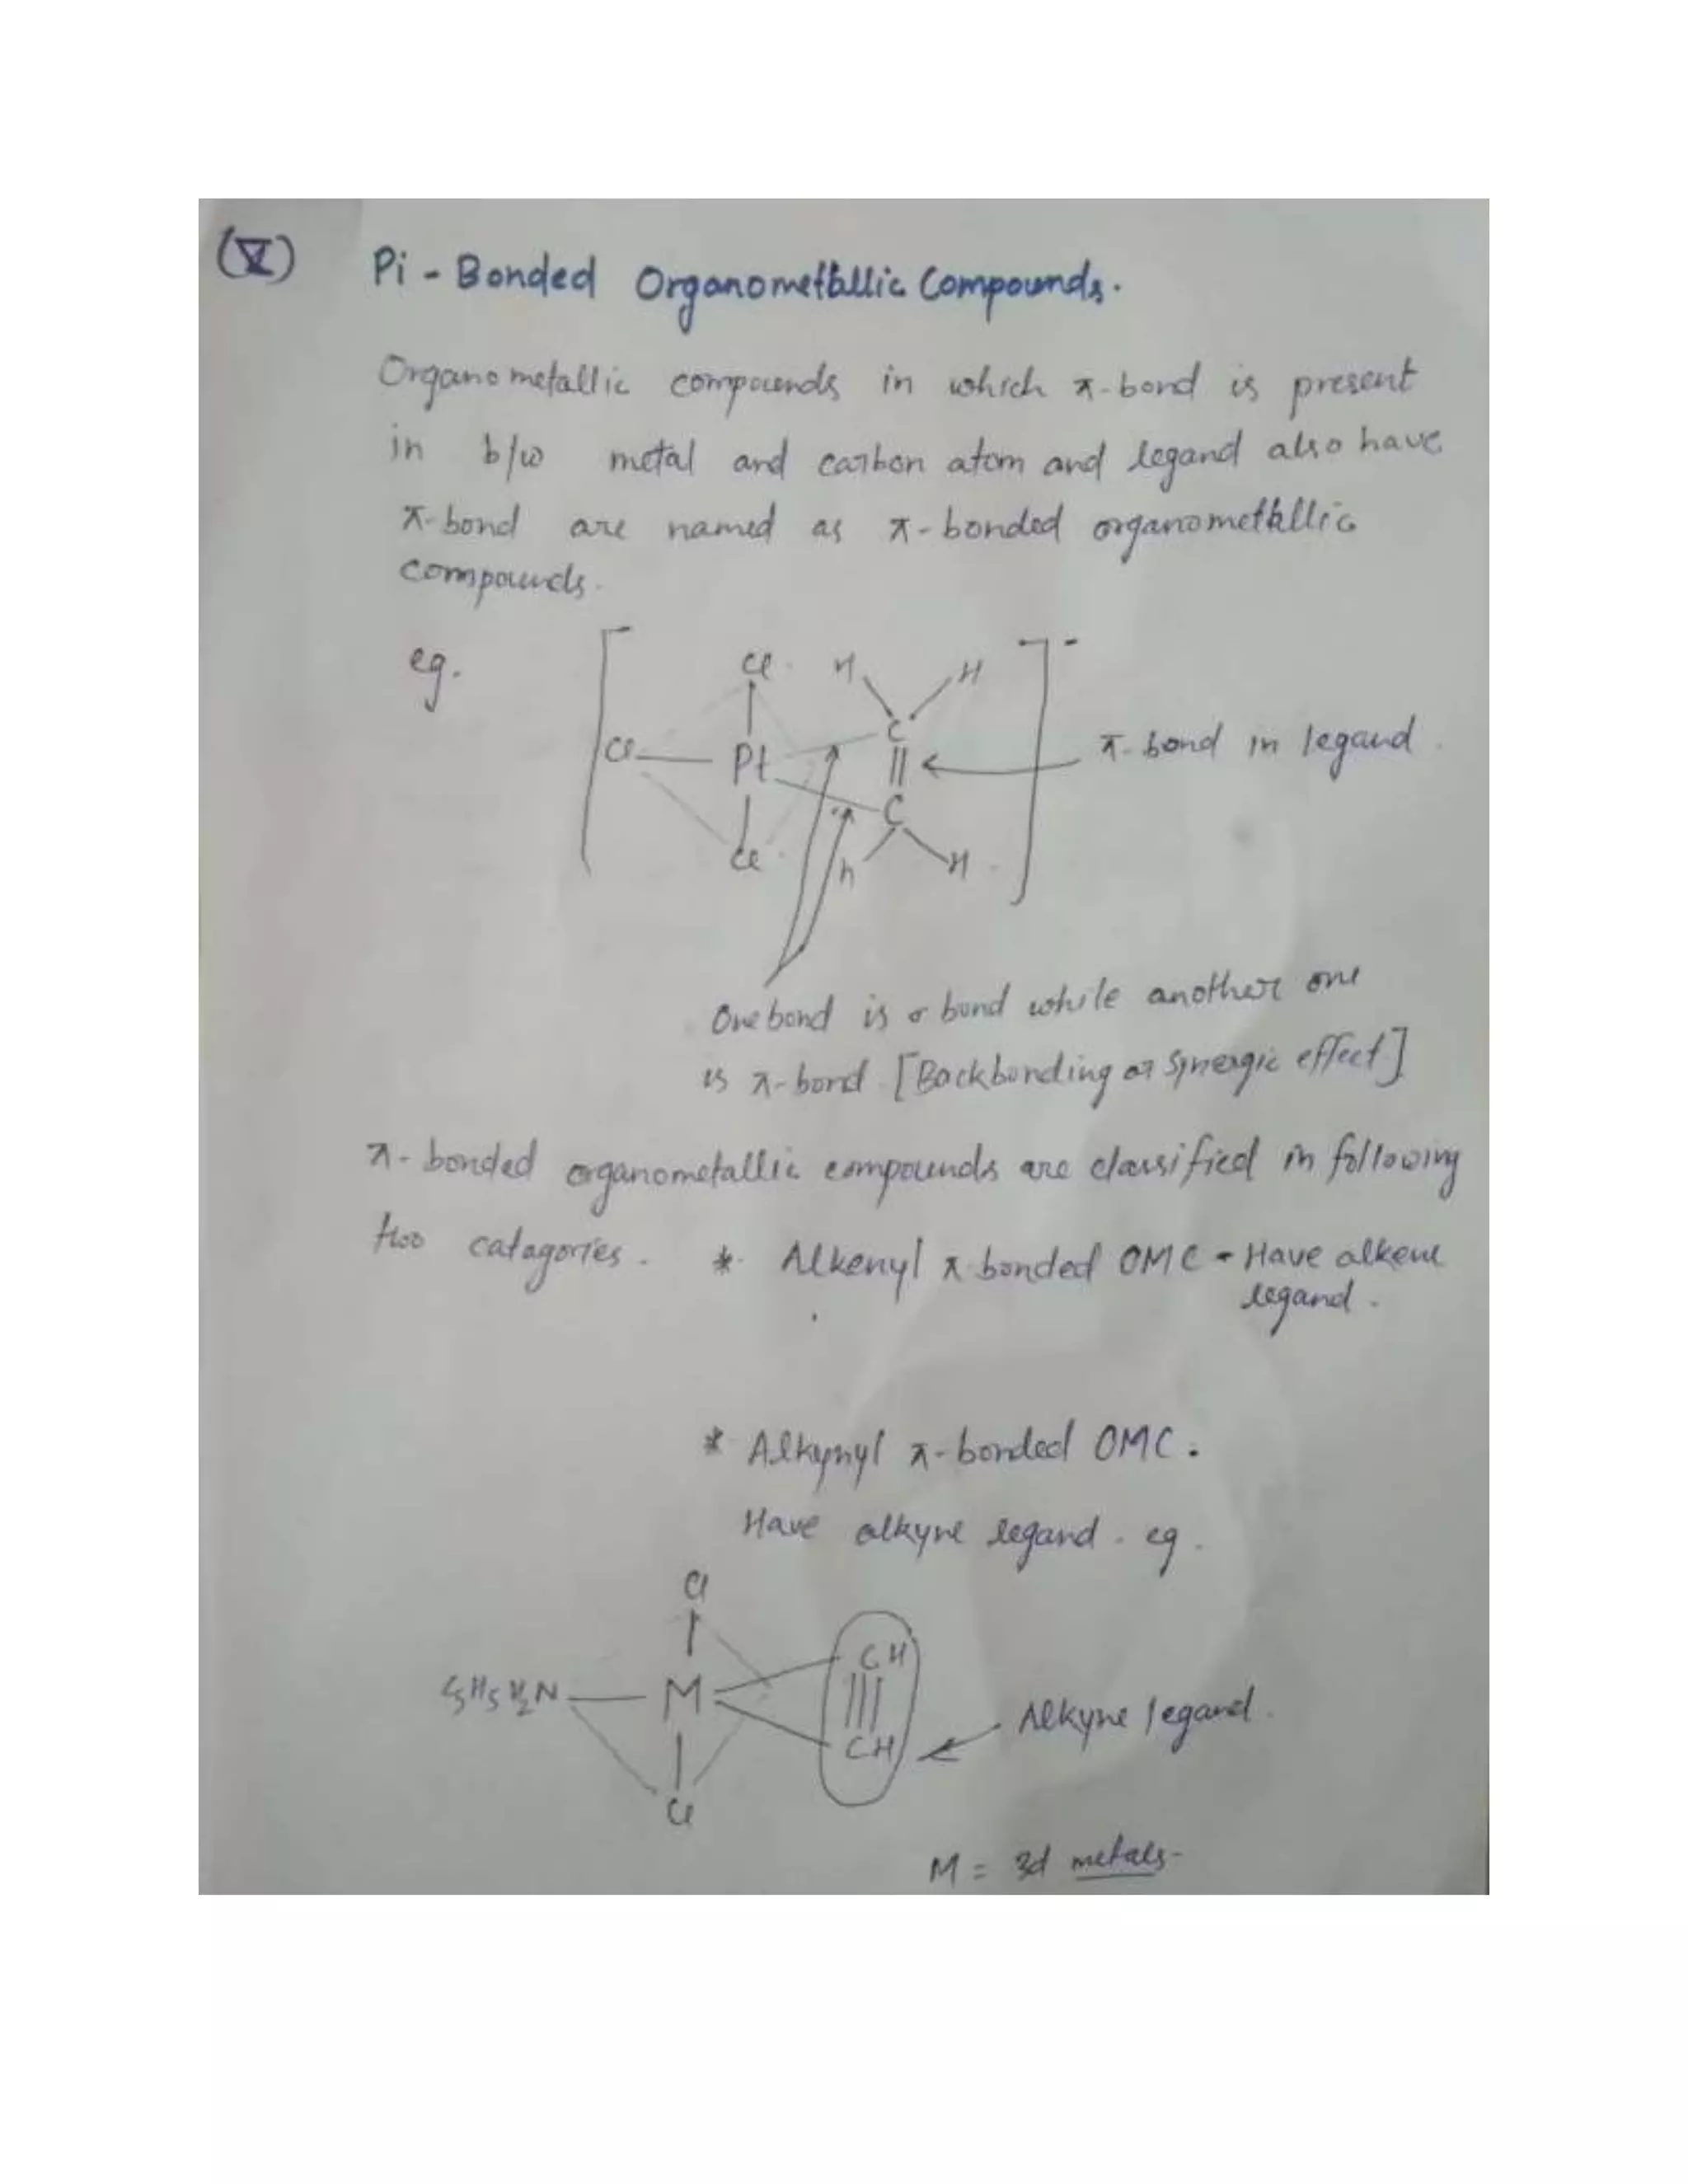 (V) Pi - Bonded Organometallic Compounds.
Organometallic compounds in which π-bond is present
in b/w metal and carbon atom and legand also have
π-bond are named as π-bonded organometallic
compounds.
eg.
[ ]-
Cl H H
C
Cl Pt || π-bond in legand.
C
Cl h H
One bond is σ bond while another one
is π-bond. [Backbonding or Synergic effect]
π-bonded organometallic compounds are classified in following
two catagories. * Alkenyl π-bonded OMC - Have alkene
legand.
* Alkynyl π-bonded OMC.
Have alkyne legand. eg.
Cl
CH
M ||| Alkyne legand.
CH
Cl
M = 3d metals-